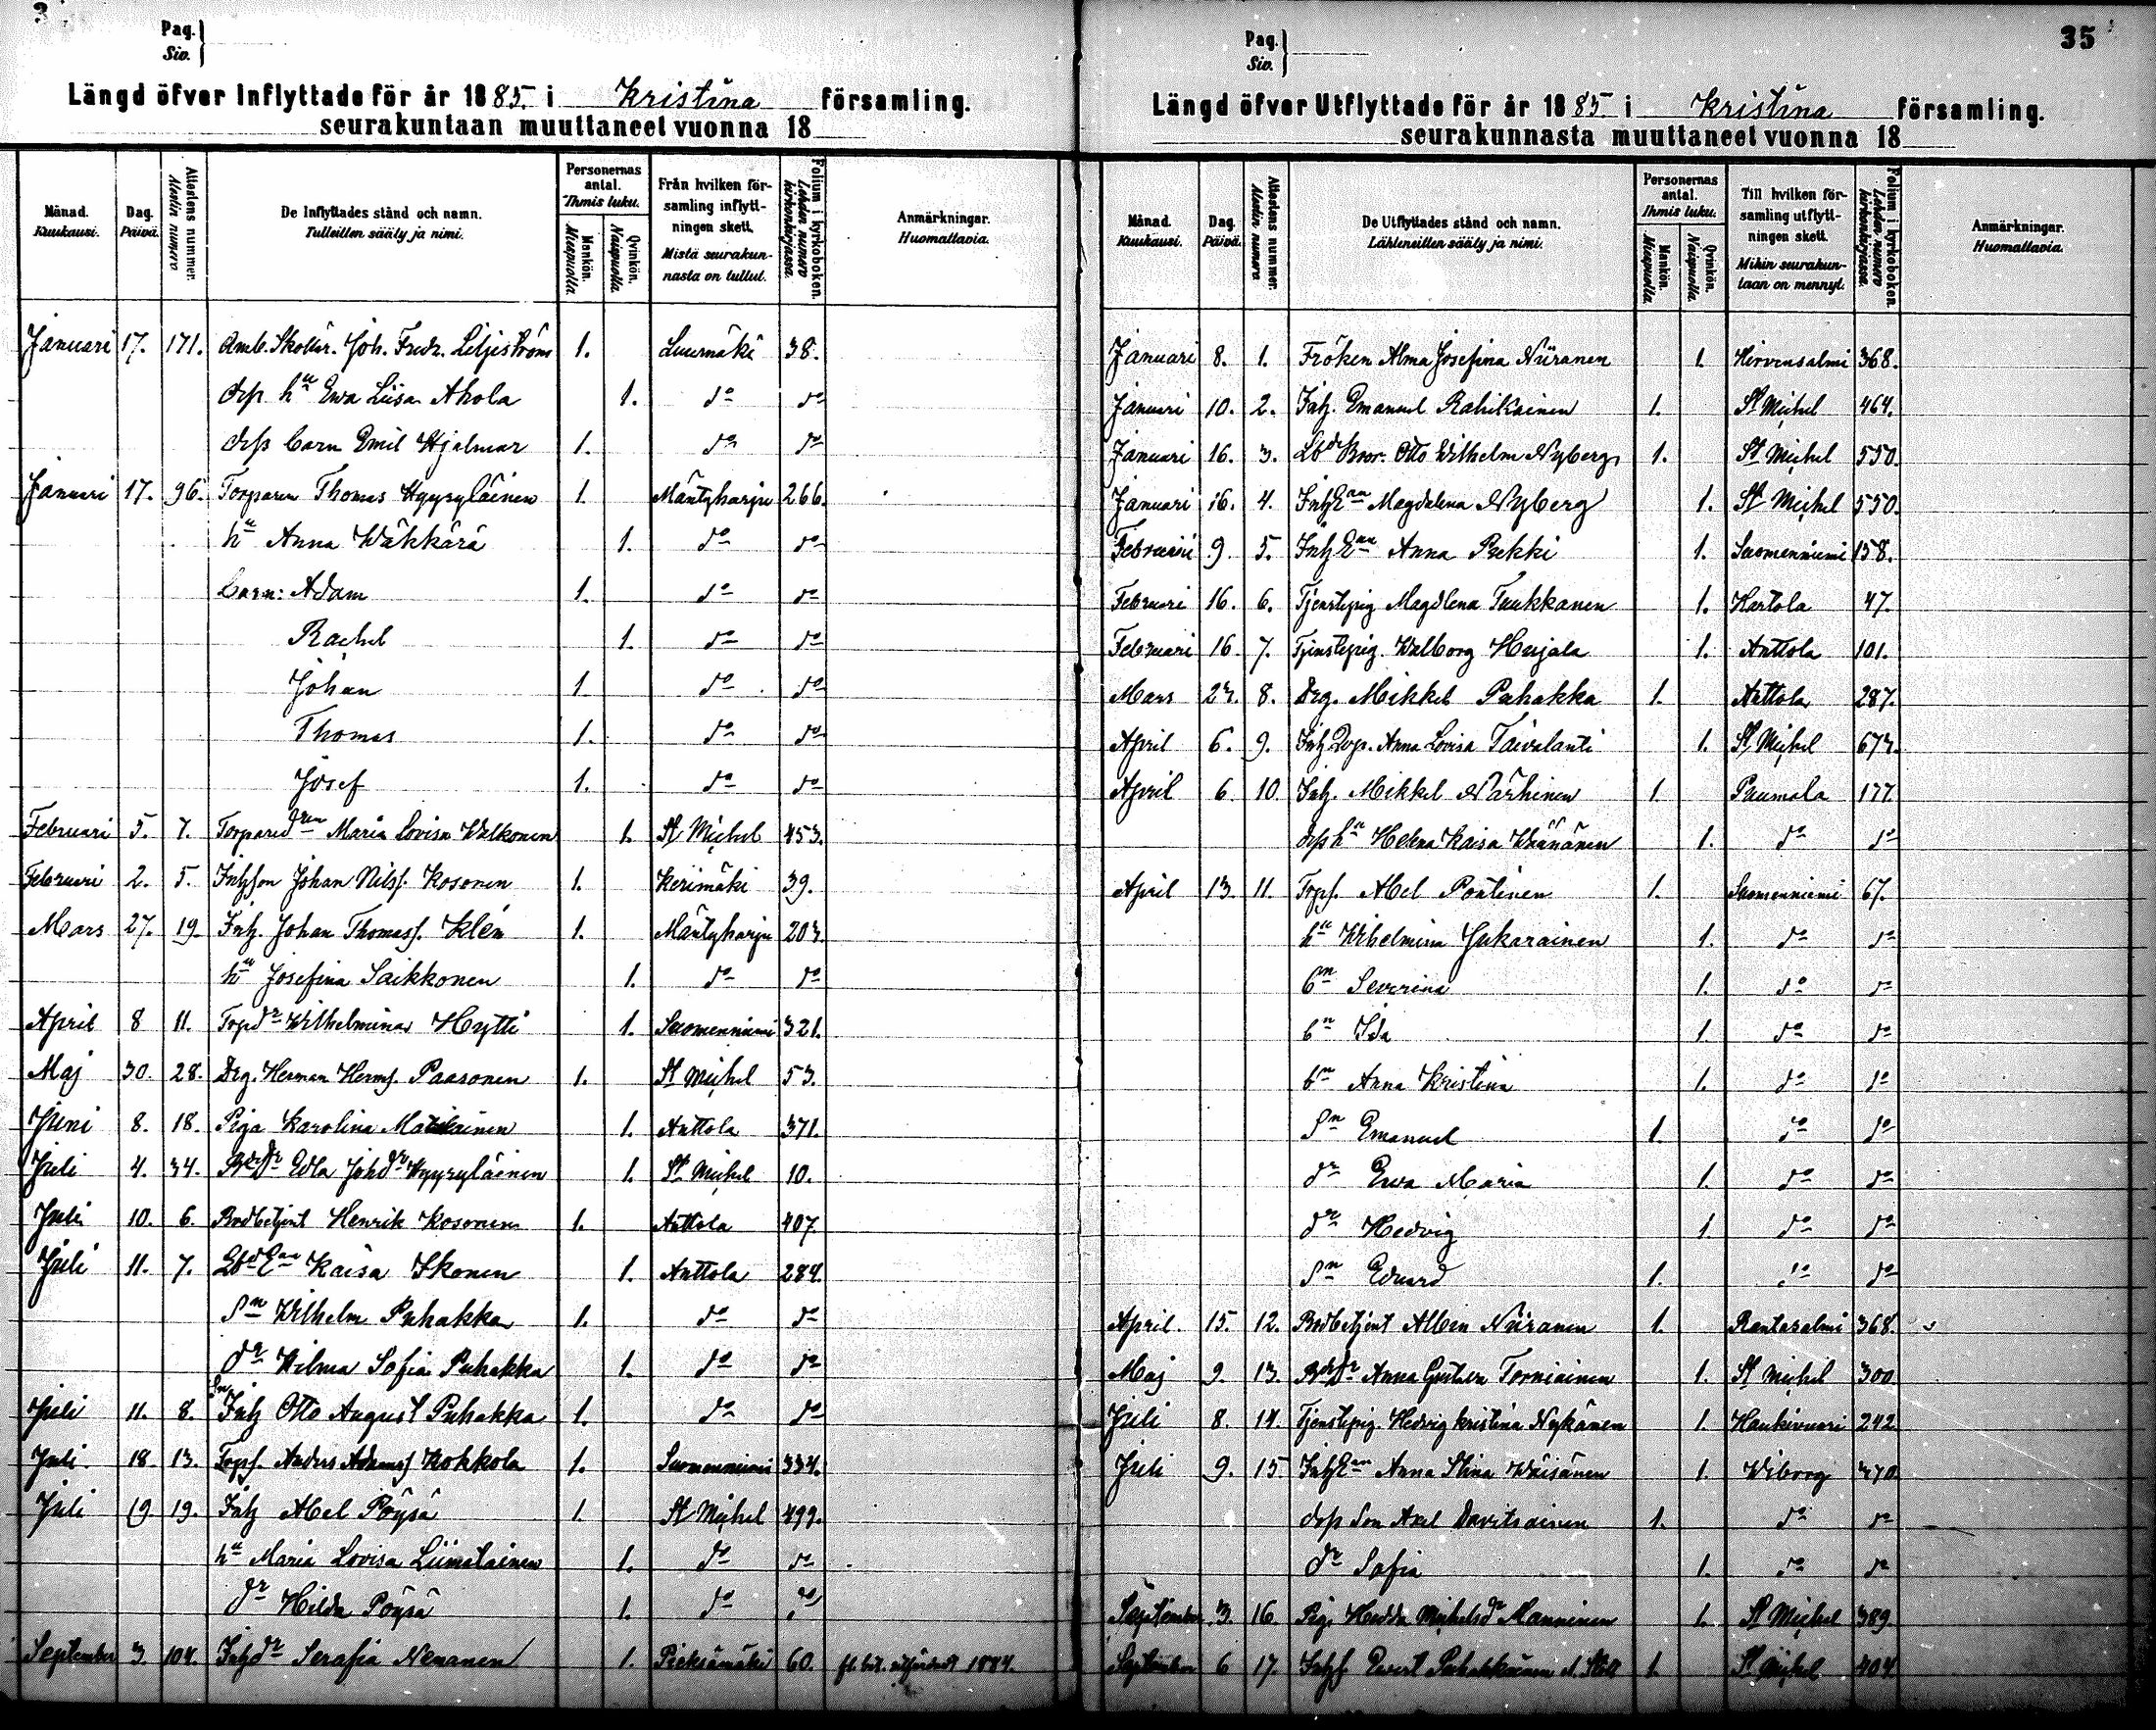 3
Pag.
Siv.
Längd öfver Inflyttade för år 1885. i Kristina församling.
seurakuntaan muuttaneet vuonna 18
Månad. Kuukausi.
Dag. Päivä.
Attestens nummer. Alestin numero
De Inflyttades stånd och namn.
Tulleitten sääty ja nimi.
Personernas antal.
Ihmis luku.
Mankön. Miespuolia.
Qvinkön. Naispuolia.
Från hvilken församling inflyttningen skett.
Mistä seurakunnasta on tullut.
Folium i kyrkoboken. Lehden numero kirkonkirjassa.
Anmärkningar.
Huomattavia.
Januari 17. 171. Amb. Skollär. Joh. Fredr. Liljeström 1. Luumäki 38.
dess hu Ewa Liisa Ahola 1. do do
dess barn Emil Hjalmar 1. do do
Januari 17. 96. Torparen Thomas Hyyryläinen 1. Mäntyharju 266.
hu Anna Wäkkärä 1. do do
barn: Adam 1. do do
Rachel 1. do do
Johan 1 do do
Thomas 1. do do
Josef 1. do do
Februari 5. 7. Torparedren Maria Lovisa Walkonen 1. St Michel 453.
Februari 2. 5. Inhson Johan Nilss. Kosonen 1. Kerimäki 39.
Mars 27. 19. Inh. Johan Thomass. Klén 1. Mäntyharju 203.
hu Josefina Saikkonen 1. do do
April 8 11. Torpdr Wilhelmina Hytti 1. Suomenniemi 321.
Maj 30. 28. Drg. Herman Herms. Paasonen 1. St Michel 53.
Juni 8. 18. Piga Karolina Matilainen 1. Anttola 371.
Juli 4. 34. Bdr Edla Johdr Hyyryläinen 1. St Michel 10.
Juli 10. 6. Bodbetjent Henrik Kosonen 1. Anttola 407.
Juli 11. 7. Lbd Ean Kaisa Ikonen 1. Anttola 284.
Sn Wilhelm Puhakka 1. do do
dr Wilma Sofia Puhakka 1. do do
Juli 11. 8. Inh Sn Otto August Puhakka 1. do do
Juli. 18. 13. Torps. Anders Adamss Kokkola 1. Suomenniemi 334.
Juli 19. 19. Inh Abel Pöysä 1. St Michel 499.
hu Maria Lovisa Liimatainen 1. do do
dr Hilda Pöysä 1. do do
September 3. 104. Inhdr Serafia Nenanen 1. Pieksämäki 60. 1884.
35
Pag.
Siv.
Längd öfver Utflyttade för år 1885. i Kristina församling.
seurakunnasta muuttaneet vuonna 18
Månad. Kuukausi.
Dag. Päivä.
Attestens nummer. Alestin numero
De Utflyttades stånd och namn.
Lähteneitten sääty ja nimi.
Personernas antal.
Ihmis luku.
Mankön. Miespuolia.
Qvinkön. Naispuolia.
Till hvilken församling utflyttningen skett.
Mihin seurakuntaan on mennyt.
Folium i kyrkoboken. Lehden numero kirkonkirjassa.
Anmärkningar.
Huomattavia.
Januari 8. 1. Fröken Alma Josefina Niiranen 1. Hirvensalmi 368.
Januari 10. 2. Inh. Emanuel Rahikainen 1. St Michel 464.
Januari 16. 3. Lbd Bror. Otto Wilhelm Nyberg 1. St Michel 550.
Januari 16. 4. Inh Ean Magdalena Nyberg 1. St Michel 550.
Februari 9. 5. Inh Ean Anna Pukki 1. Suomenniemi 158.
Februari 16. 6. Tjenstepig Magdlena Tuukkanen 1. Hartola 47.
Februari 16 7. Tjenstepig. Walborg Hujala 1. Anttola 101.
Mars 23. 8. Drg. Mikkel Puhakka 1. Anttola 287.
April 6. 9. Inh Drp. Anna Lovisa Taivalanti 1. St Michel 673.
April 6 10. Inh. Mikkel Närhinen 1. Puumala 177.
dess hu Helena Kaisa Wäänänen 1. do do
April 13. 11. Torps. Abel Pontinen 1. Suomenniemi 67.
hu Wilhelmina Jukarainen 1. do do
bn Severina 1. do do
bn Ida 1 do do
bn Anna Kristina 1. do do
Sn Emanuel 1 do do
dr Ewa Maria 1. do do
dr Hedvig 1. do do
Sn Eduard 1. do do
April. 15. 12. Bodbetjent Albin Niiranen 1. Rantasalmi 368.
Maj 9. 13. Bdr Anna Gustava Torniainen 1. St Michel 300
Juli 8. 14. Tjenstepig. Hedvig Kristina Nykänen 1. Haukivuori 242
Juli 9. 15 Inh Ean Anna Stina Wäisänen 1. Wiborg 370
dess Son Axel Davitsainen 1. do do
dr Sofia 1. do do
September 3. 16. Pig. Hedda Michelsdr Manninen 1. St Michel 389.
September 6 17. Inhs Evert Puhakkainen 1. St Michel 404.